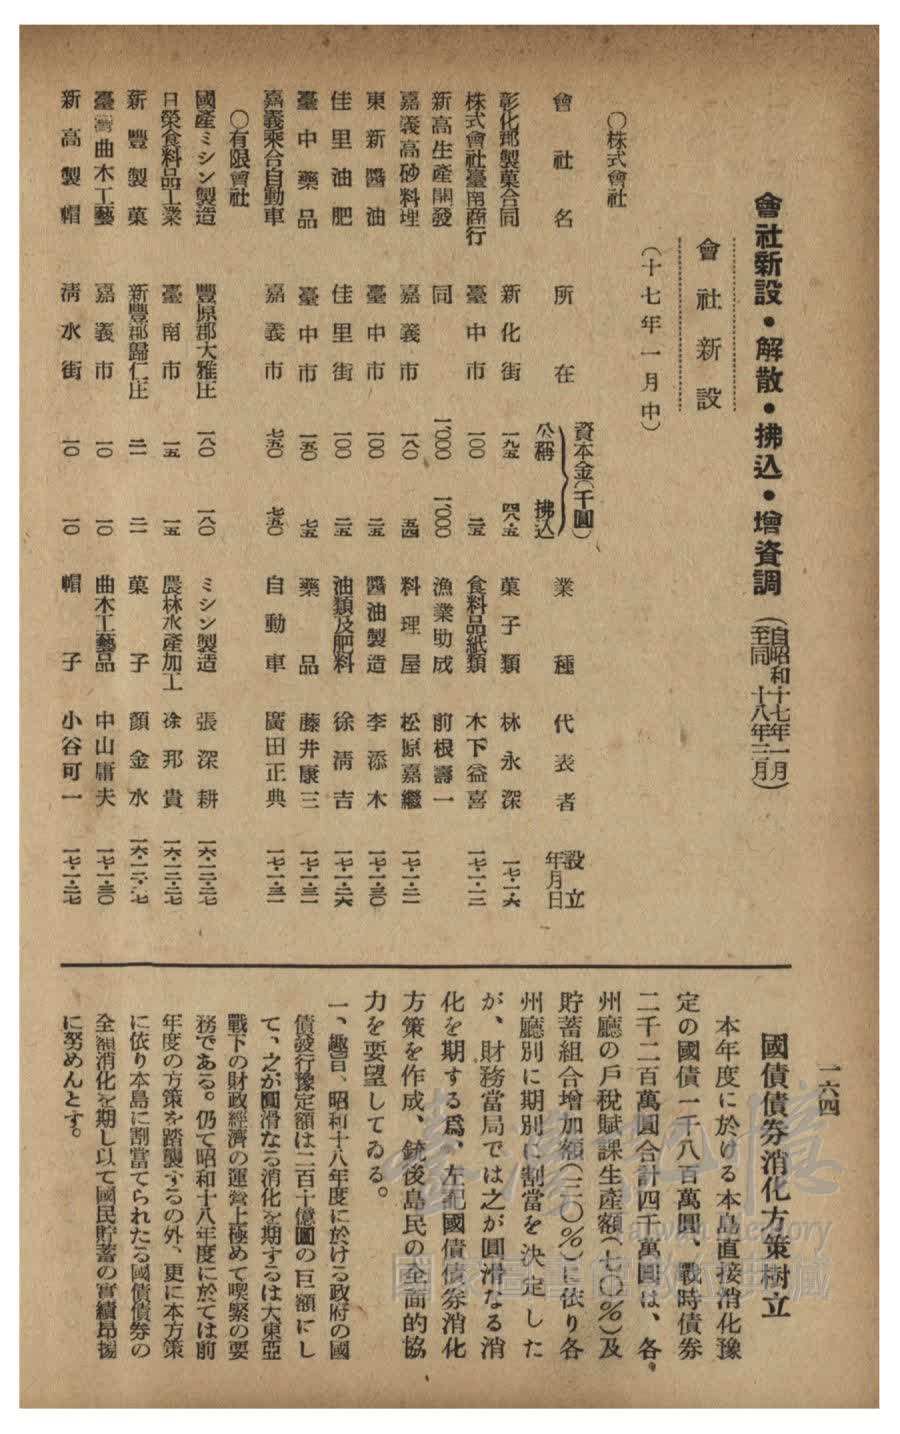 一六四
會社新設・解散・拂込・增資調（自昭和十七年一月 至同 十八年三月）
會社新設
（十七年一月中）
〇株式會社
會社名 所在 資本金（千圓） 公稱 拂込 業種 代表者 設立年月日
彰化郡製菓合同 新化街 一九五 四八・五 菓子類 林永深 一七・一・六
株式會社臺南商行 臺中市 一〇〇 二五 食料品紙類 木下益喜 一七・一・一二
新高生產開發 同 一、〇〇〇 一、〇〇〇 漁業助成 前根壽一
嘉義高砂料理 嘉義市 一八〇 五四 料理屋 松原嘉繼 一七・一・二一
東新醬油 臺中市 一〇〇 二五 醬油製造 李添木 一七・一・三〇
佳里油肥 佳里街 一〇〇 二五 油類及肥料 徐淸吉 一七・一・二六
臺中藥品 臺中市 一五〇 七五 藥品 藤井康三 一七・一・三一
嘉義乘合自動車 嘉義市 七五〇 七五〇 自動車 廣田正典 一七・一・三一
〇有限會社
國產ミシン製造 豐原郡大雅庄 一八〇 一八〇 ミシン製造 張深耕 一六・一二・二七
日榮食料品工業 臺南市 一五 一五 農林水產加工 涂邦貴 一六・一二・二七
新豐製菓 新豐郡歸仁庄 二一 二一 菓子 顏金水 一六・一二・一七
臺灣曲木工藝 嘉義市 一〇 一〇 曲木工藝品 中山庸夫 一七・一・三〇
新高製帽 淸水街 一〇 一〇 帽子 小谷可一 一七・一・二七
國債債券消化方策樹立
本年度に於ける本島直接消化豫
定の國債一千八百萬圓、戰時債券
二千二百萬圓合計四千萬圓は、各
州廳の戶稅賦課生產額（七〇％）及
貯蓄組合增加額（三〇％）に依り各
州廳別に期別に割當を決定した
が、財務當局では之が圓滑なる消
化を期する爲、左記國債債券消化
方策を作成、銃後島民の全面的協
力を要望してゐる。
一、趣旨、昭和十八年度に於ける政府の國
債發行豫定額は二百十億圓の巨額にし
て、之が圓滑なる消化を期するは大東亞
戰下の財政經濟の運營上極めて喫緊の要
務である。仍て昭和十八年度に於ては前
年度の方策を踏襲するの外、更に本方策
に依り本島に割當てられたる國債債券の
全額消化を期し以て國民貯蓄の實績昂揚
に努めんとす。
Taiwan Memory